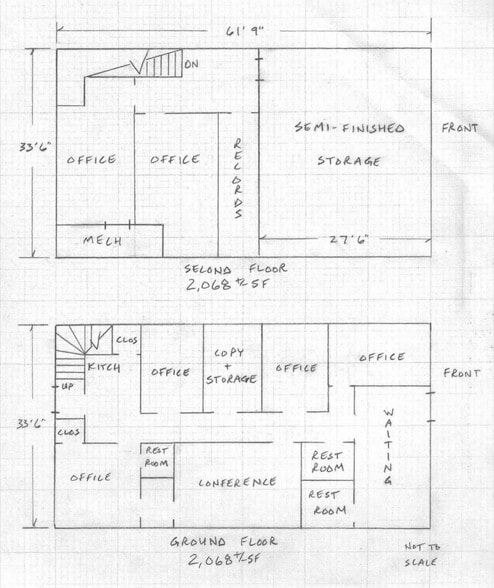 61' 9"
DN
33'6"
OFFICE
OFFICE
RECORDS
SEMI-FINISHED
STORAGE
FRONT
MECH
27'6"
SECOND FLOOR
2,068 +/- SF
CLOS
KITCH
UP
OFFICE
COPY
+
STORAGE
OFFICE
OFFICE
FRONT
33'6"
CLOS
WAITING
OFFICE
REST
ROOM
CONFERENCE
REST
ROOM
REST
ROOM
GROUND FLOOR
2,068 +/- SF
NOT TO
SCALE